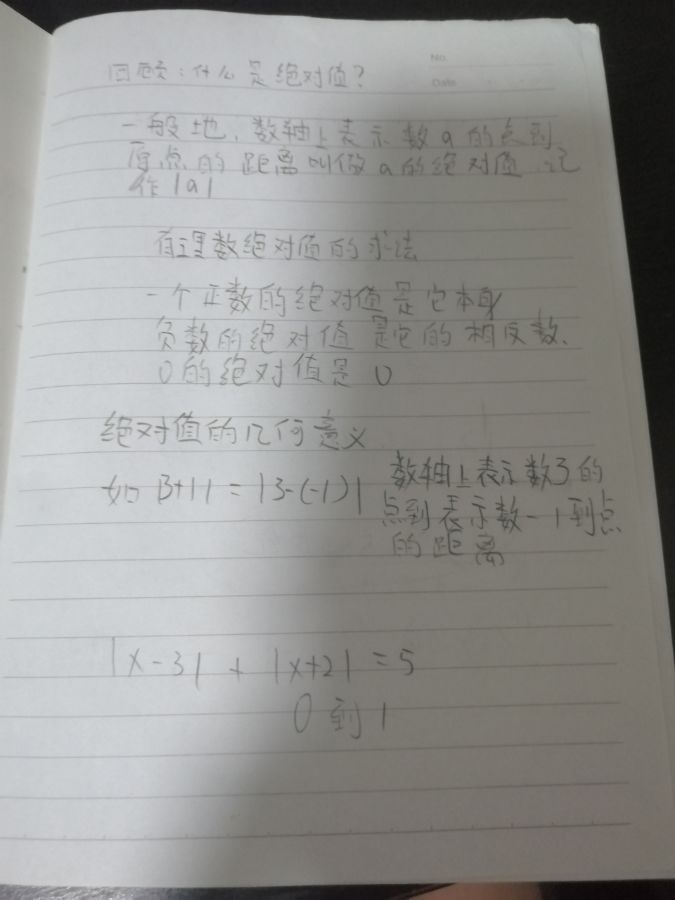 No.
Date
回顾:什么是绝对值?
一般地,数轴上表示数a的点到
原点的距离叫做a的绝对值,记
作|a|
有理数绝对值的求法
一个正数的绝对值是它本身
负数的绝对值是它的相反数、
0的绝对值是0
绝对值的几何意义
如|3+1|=|3-(-1)|
数轴上表示数3的
点到表示数-1到点
的距离
|x-3|+|x+2|=5
0到1